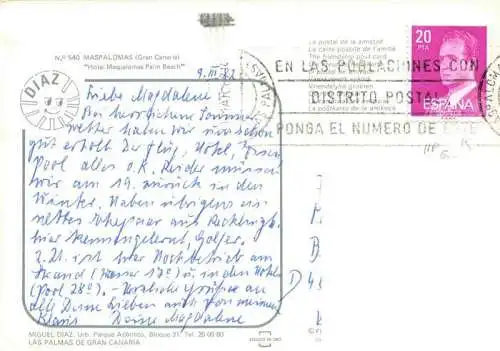 N.º 540 MASPALOMAS (Gran Canaria)
"Hotel Maspalomas Palm Beach"
9.III.82
DIAZ
La postal de la amistad
La carte postale de l'amité
The friendly post card
EN LAS POBLACIONES CON
DISTRITO POSTAL
PONGA EL NUMERO DE ESTE
20
PTA
ESPAÑA
Liebe Magdalene
Bei herrlichem Sommer-
wetter haben wir uns schon
gut erholt. Der Flug, Hotel,
Pool alles o.k. Leider müssen
wir am 19. zurück in den
Winter. Haben übrigens ein
nettes Ehepaar aus Recklingh.
hier kennengelernt, Golfer.
Z. Zt. ist hier Hochbetrieb am
Strand (Wasser 19°) u. in den Hotel-
pool (28°). - Herzliche Grüße an
all Deine Lieben auch von meinem
Klaus Deine Magdalene
D 4
MIGUEL DIAZ, Urb. Parque Atlántico, Bloque 31, Tel. 20 00 80
LAS PALMAS DE GRAN CANARIA